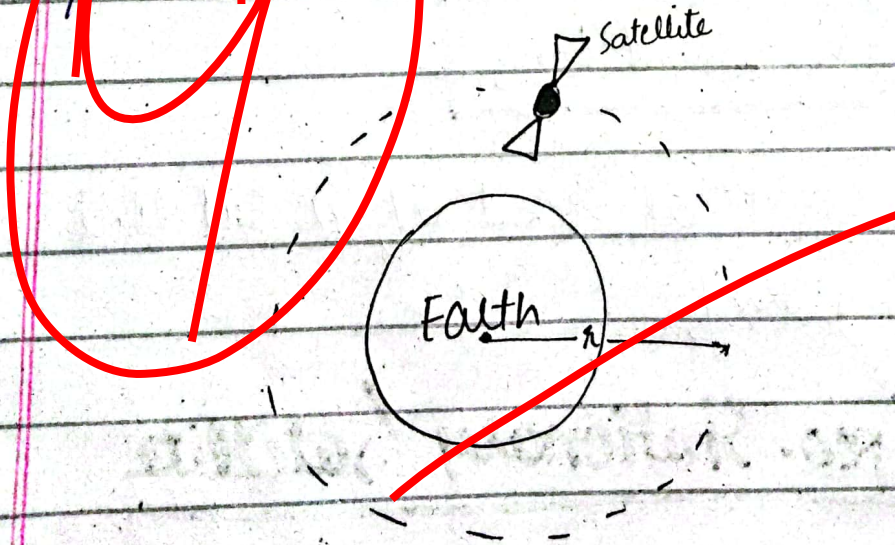 Satellite
Earth
r